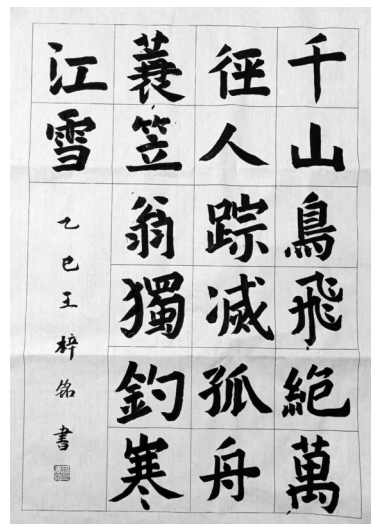 千山鳥飛絕萬
徑人踪滅孤舟
蓑笠翁獨釣寒
江雪
乙巳王梓銘書